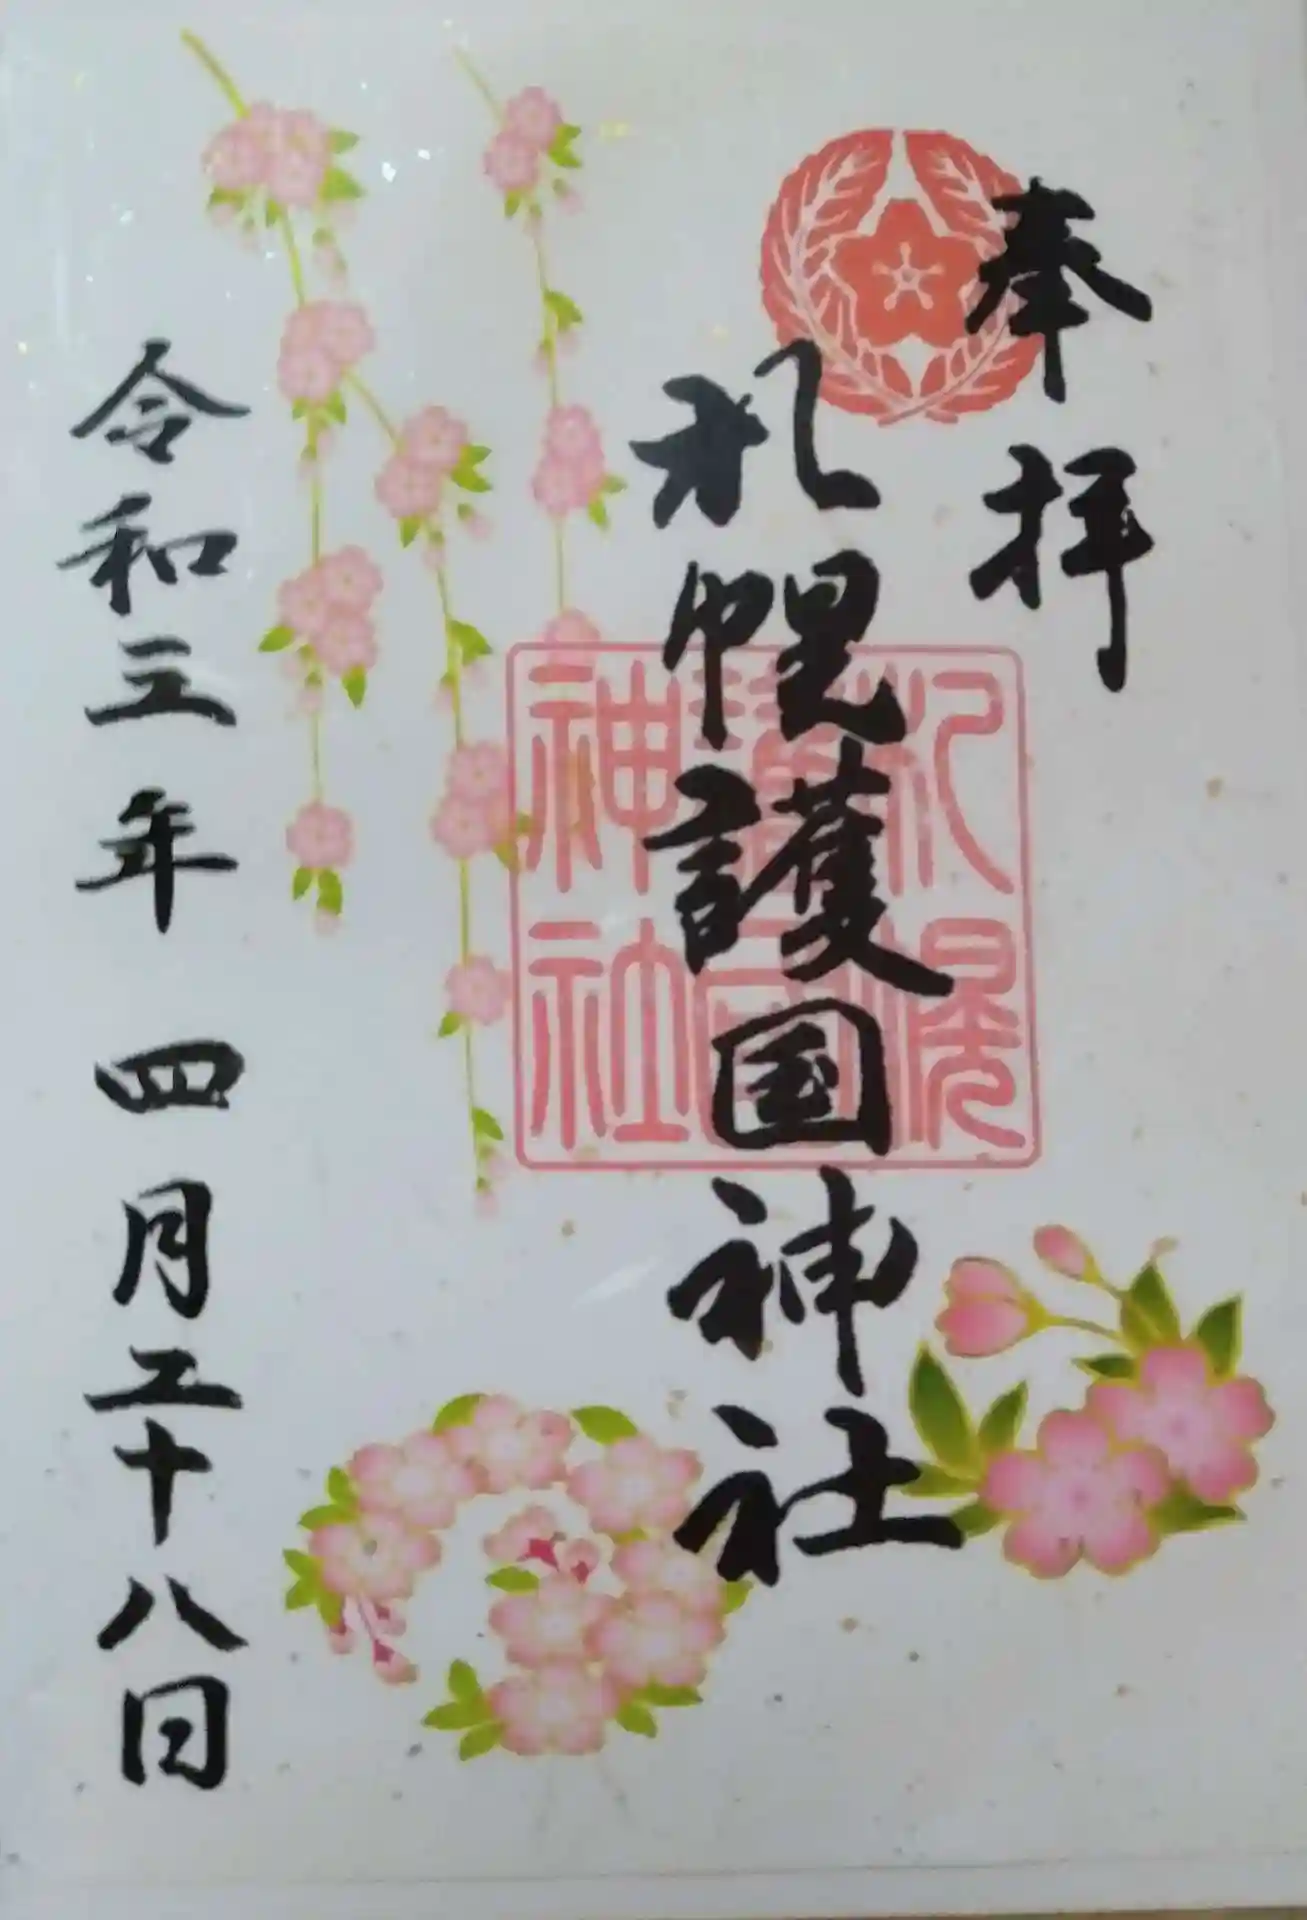 奉拝
札幌護国神社
札幌
護国
神社
令和三年 四月二十八日